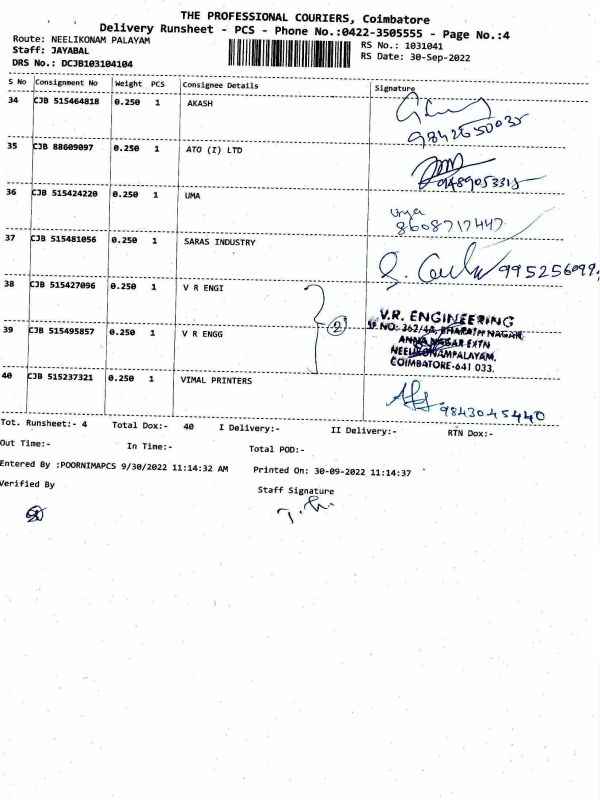 THE PROFESSIONAL COURIERS, Coimbatore
Delivery Runsheet - PCS - Phone No.:0422-3505555 - Page No.:4
Route: NEELIKONAM PALAYAM
Staff: JAYABAL
DRS No.: DCJB103104104
RS No.: 1031041
RS Date: 30-Sep-2022
S No Consignment No Weight PCS Consignee Details Signature
34 CJB 515464818 0.250 1 AKASH
9842650035
35 CJB 88609097 0.250 1 ATO (I) LTD
9489053315
36 CJB 515424220 0.250 1 UMA
uma
8608717447
37 CJB 515481056 0.250 1 SARAS INDUSTRY
995256099
38 CJB 515427096 0.250 1 V R ENGI
2
V.R. ENGINEERING
SF.NO: 362/4A, BHARATH NAGAR
ANNA NAGAR EXTN
NEELIKONAMPALAYAM,
COIMBATORE-641 033.
39 CJB 515495857 0.250 1 V R ENGG
40 CJB 515237321 0.250 1 VIMAL PRINTERS
9843045440
Tot. Runsheet:- 4 Total Dox:- 40 I Delivery:- II Delivery:- RTN Dox:-
Out Time:- In Time:- Total POD:-
Entered By :POORNIMAPCS 9/30/2022 11:14:32 AM Printed On: 30-09-2022 11:14:37
Verified By Staff Signature